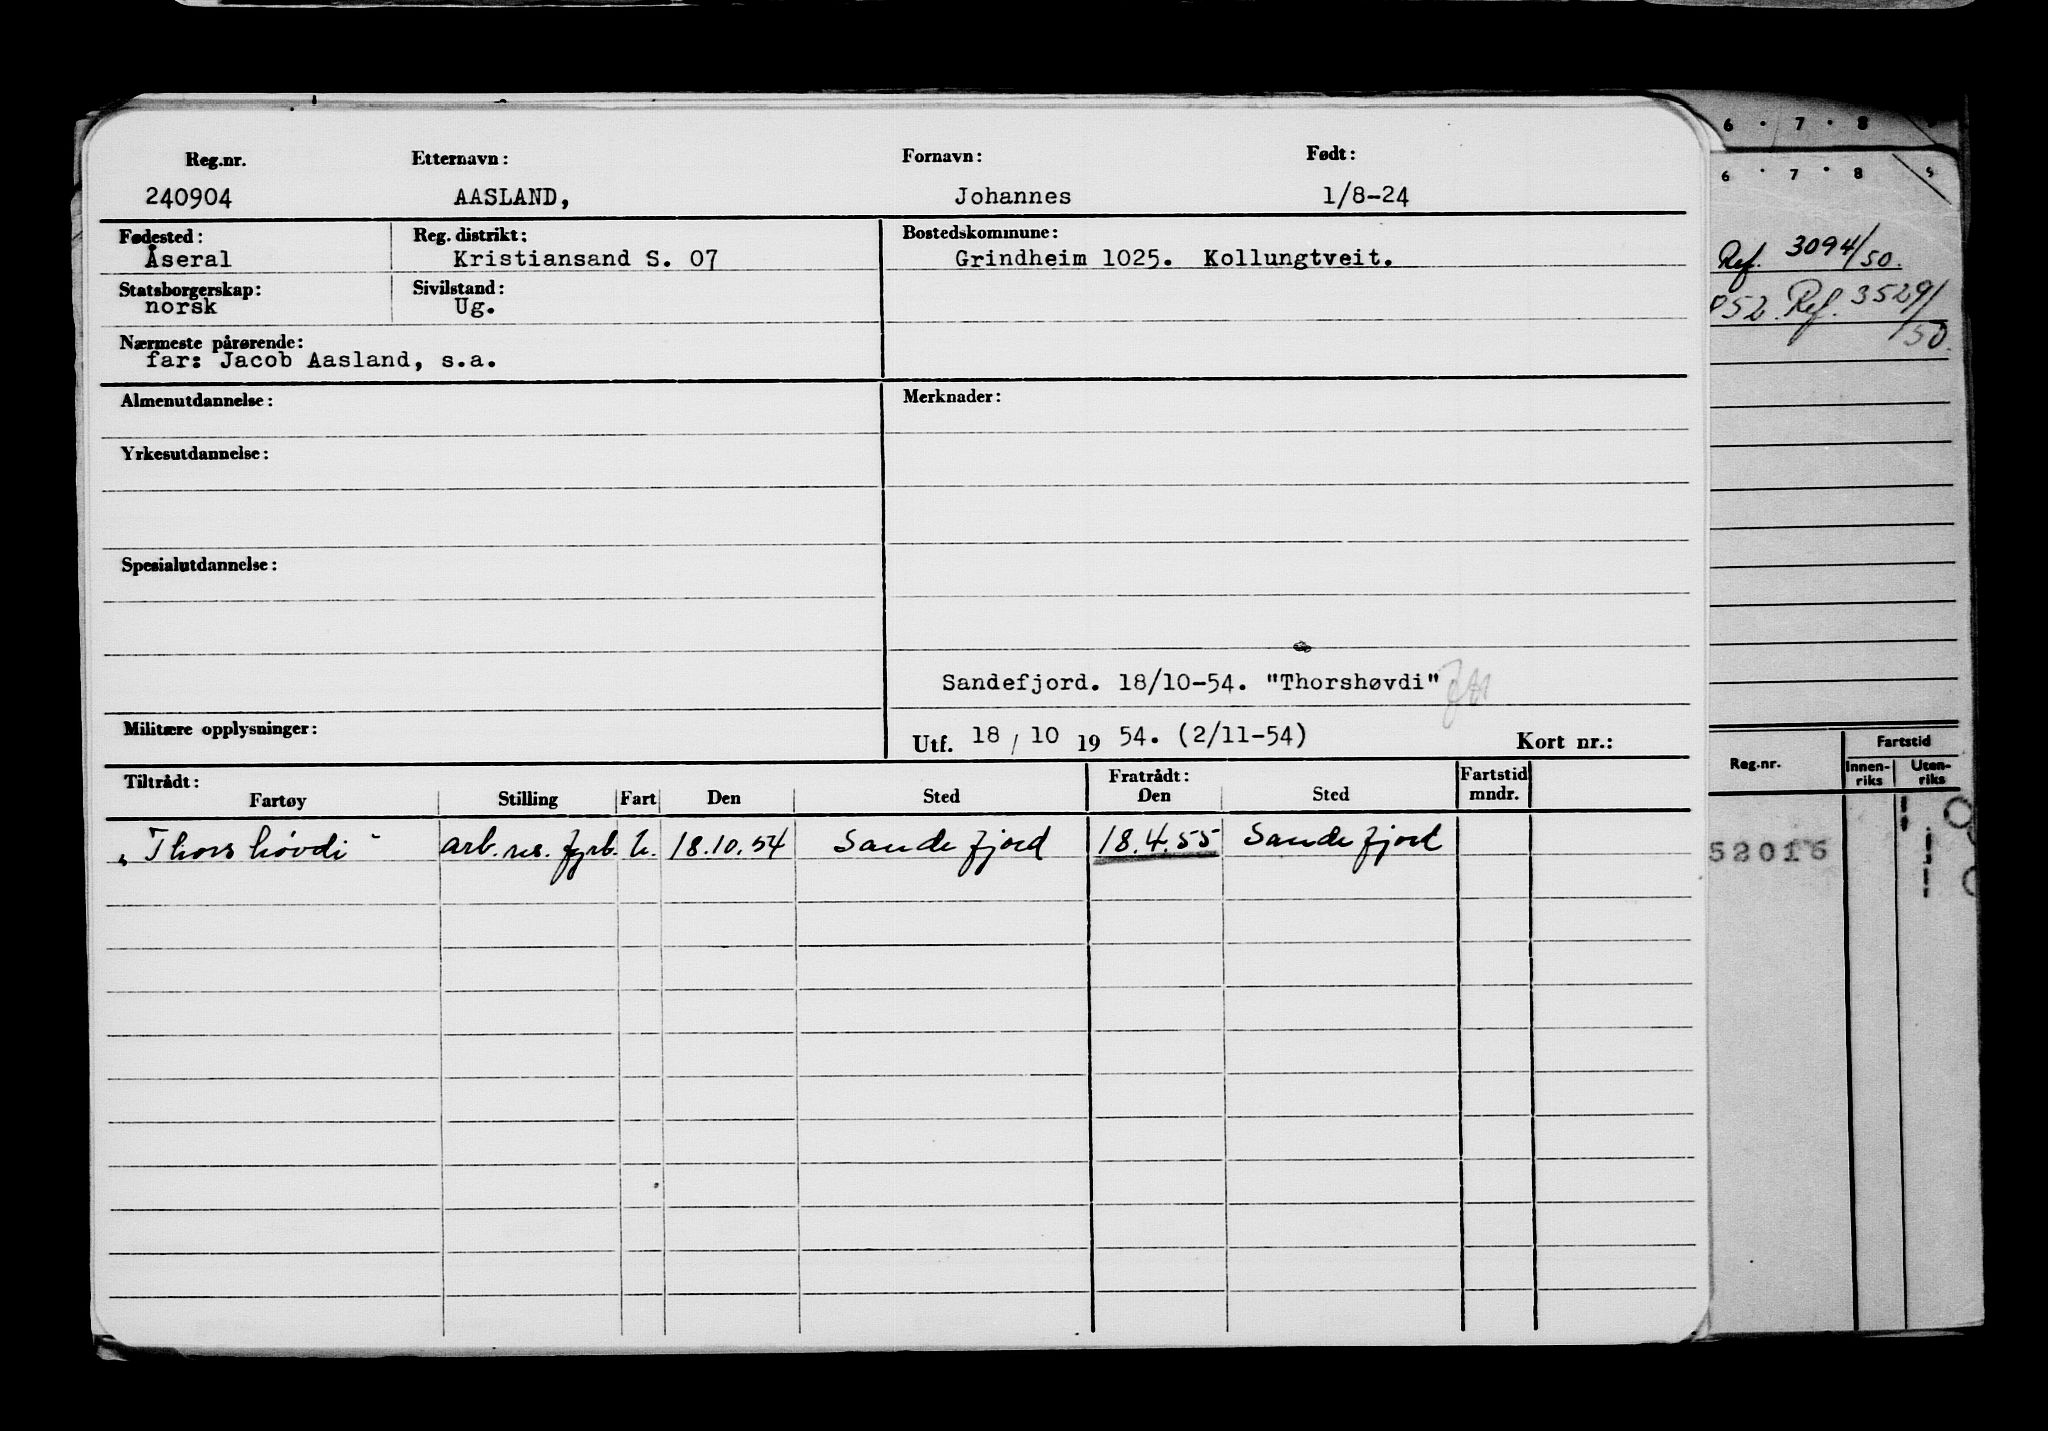 Reg.nr. Etternavn: Fornavn: Født:
240904 AASLAND, Johannes 1/8-24
Fødested: Reg. distrikt: Bostedskommune:
Åseral Kristiansand S. 07 Grindheim 1025. Kollungtveit.
Statsborgerskap: Sivilstand:
norsk Ug.
Nærmeste pårørende:
far: Jacob Aasland, s.a.
Almenutdannelse: Merknader:
Yrkesutdannelse:
Spesialutdannelse:
Sandefjord. 18/10-54. "Thorshøvdi"
Militære opplysninger: Utf. 18/10 19 54. (2/11-54) Kort nr.:
Tiltrådt: Fratrådt: Fartstid
Fartøy Stilling Fart Den Sted Den Sted mndr.
„Thorshøvdi" arb. res. fyrb. h. 18.10.54 Sandefjord 18.4.55 Sandefjord
6 · 7 · 8
6 · 7 · 8 9
Ref. 3094/50.
952. Ref. 3529/
50.
Fartstid
Reg.nr. Innen-riks Uten-riks
52016